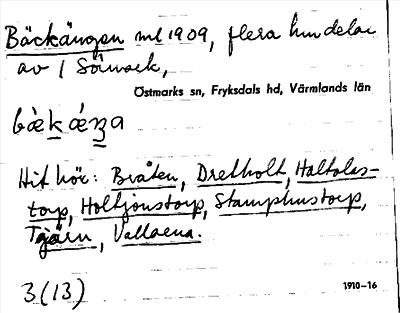 Bäckängen ml 1909, flera hundelar
av / Sörmark,
Östmarks sn, Fryksdals hd, Värmlands län
Hit hör: Bråten, Dretholt, Haltolas-
torp, Holtjonstorp, Stamphustorp,
Tjärn, Vallarna.
3(13)
1910-16